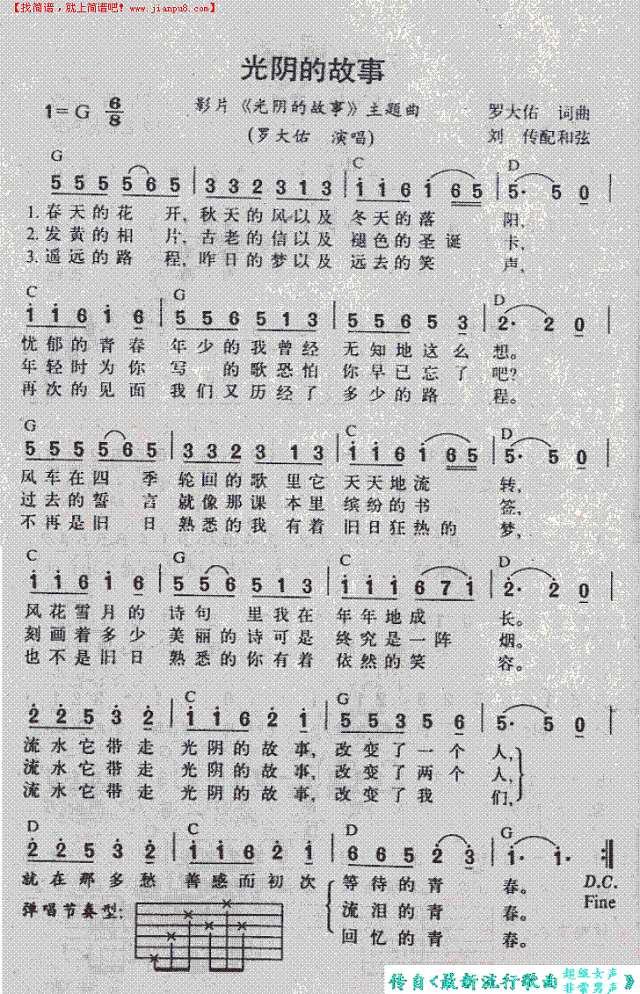 【找简谱，就上简谱吧! www.jianpu8.com】
光阴的故事
1=G 6/8
影片《光阴的故事》主题曲
罗大佑 词曲
(罗大佑 演唱)
刘 传配和弦
G C D
5 5 5 5 6 5 | 3 3 2 3 1 3 | 1 1 6 1 6 5 | 5· 5 0 |
1.春天的花 开, 秋天的风以及 冬天的落 阳,
2.发黄的相 片, 古老的信以及 褪色的圣诞 卡,
3.遥远的路 程, 昨日的梦以及 远去的笑 声,
C G D
1 1 6 1 6 | 5 5 6 5 1 3 | 5 5 6 5 5 3 | 2· 2 0 |
忧郁的青春 年少的我曾经 无知地这么 想。
年轻时为你 写 的歌恐怕 你早已忘了 吧?
再次的见面 我们又历经了 多少的路 程。
G C D
5 5 5 5 5 6 5 | 3 3 2 3 1 3 | 1 1 6 1 6 5 | 5· 5 0 |
风车在四 季 轮回的歌 里它 天天地流 转,
过去的誓 言 就像那课 本里 缤纷的书 签,
不再是旧 日 熟悉的我 有着 旧日狂热的 梦,
C G C D
1 1 6 1 6 | 5 5 6 5 1 3 | 1 1 1 6 7 1 | 2· 2 0 |
风花雪月的 诗句 里我在 年年地成 长。
刻画着多少 美丽的诗可是 终究是一阵 烟。
也不是旧日 熟悉的你有着 依然的笑 容。
D C G
2 2 5 3 2 | 1 1 6 2 1 | 5 5 3 5 6 | 5· 5 0 |
流水它带走 光阴的故 事, 改变了一个 人,
流水它带走 光阴的故 事, 改变了两个 人,
流水它带走 光阴的故 事, 改变了我 们,
D C D G
2 2 5 3 2 | 1 1 6 2 1 | 6 6 5 2 3 2 | 1· 1· :||
就在那多愁 善感而初次 等待的青 春。 D.C.
弹唱节奏型: 流泪的青 春。 Fine
回忆的青 春。
传自《最新流行歌曲 超级女声 非常男声》